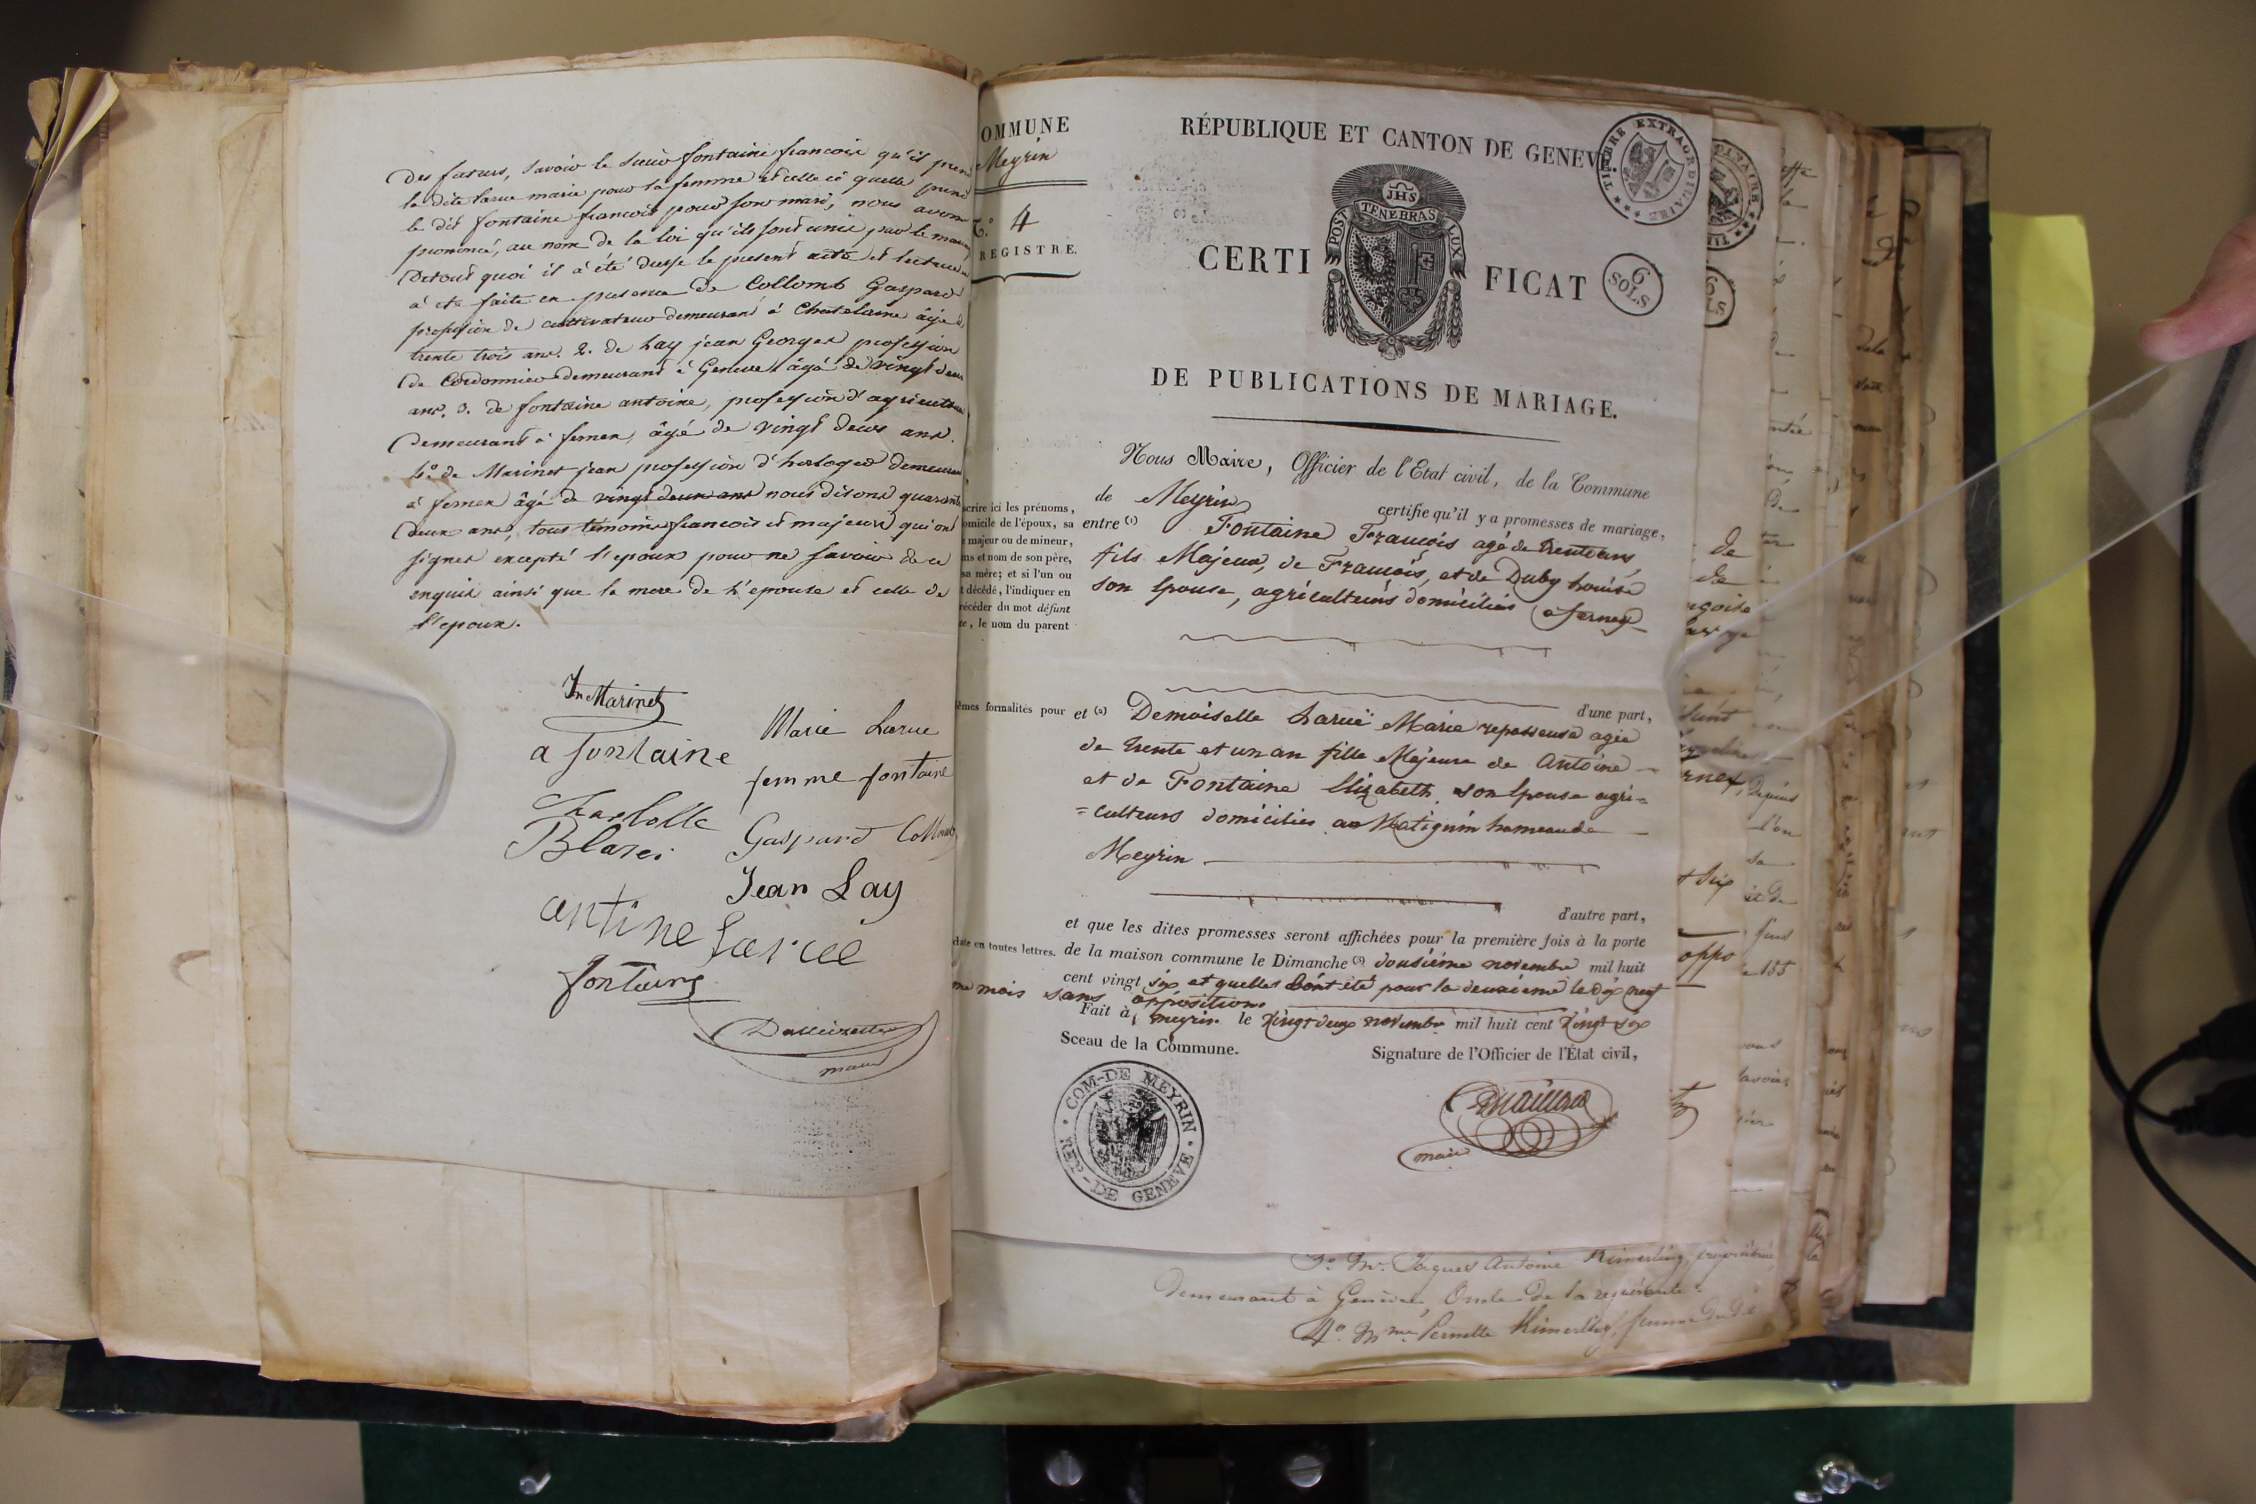 des futurs, savoir le sieur fontaine francois qu'il prend
la dite larue marie pour sa femme et celle ci quelle prend
le dit fontaine francois pour son mari, nous avons
prononcé, au nom de la loi qu'ils sont unis par le mariage
Detout quoi il a été dressé le present acte et lecture en
a été faite en presence de Collomb Gaspard
profession de cultivateur demeurant à Chatelaine âgé de
trente trois ans. 2. de Lay jean Georges profession
de Cordonnier demeurant à Geneve âgé de vingt deux
ans. 3. de fontaine antoine, profession d'agriculteur
demeurant à fernex, âgé de vingt deux ans.
4.º de Marinet jean profession d'horloger demeurant
à fernex âgé de vingt deux ans nous disons quarante
deux ans, tous temoins francois et majeurs qui ont
signer excepté l'epoux pour ne savoir de ce
enquis ainsi que la mere de l'epouse et celle de
l'epoux.
Jn Marinet
Marie Larue
a fontaine
femme fontaine
Charlotte
Blasei
Gaspard Collomb
Jean Lay
antine Larue
fontaine
maire
OMMUNE
Meyrin
4
REGISTRE.
RÉPUBLIQUE ET CANTON DE GENEV
TIMBRE EXTRAORDINAIRE
JHS
POST TENEBRAS LUX
CERTI FICAT
6 SOLS
DE PUBLICATIONS DE MARIAGE.
Nous Maire, Officier de l'Etat civil, de la Commune
de Meyrin certifie qu'il y a promesses de mariage,
entre (1) Fontaine Francois agé de trente ans,
fils Majeur, de François, et de Duby Louise
son Epouse, agriculteurs domiciliés a ferney
d'une part,
et (2) Demoiselle Larue Marie repasseuse agée
de trente et un an fille Majeure de Antoine
et de Fontaine Elizabeth son Epouse agri-
=culteurs domicilies a Matignin hameau de
Meyrin
d'autre part,
et que les dites promesses seront affichées pour la première fois à la porte
de la maison commune le Dimanche (3) dousiéme novembre mil huit
cent vingt six et quelles l'ont été pour la deuxieme le dix neuf
me mois sans opposition
Fait à meyrin le vingt deux novembre mil huit cent vingt six
Sceau de la Commune.
Signature de l'Officier de l'État civil,
COM-DE MEYRIN
REP.-DE GENÈVE
maire
scrire ici les prénoms,
omicile de l'époux, sa
e majeur ou de mineur,
ns et nom de son père,
sa mère; et si l'un ou
t décédé, l'indiquer en
récéder du mot défunt
te, le nom du parent
êmes formalités pour
date en toutes lettres.
3º. Mr. Jaques Antoine Kimerling, propriétaire
demeurant à Genève, Oncle de la requérante.
4º. Mme. Pernette Kimerling, femme du dit